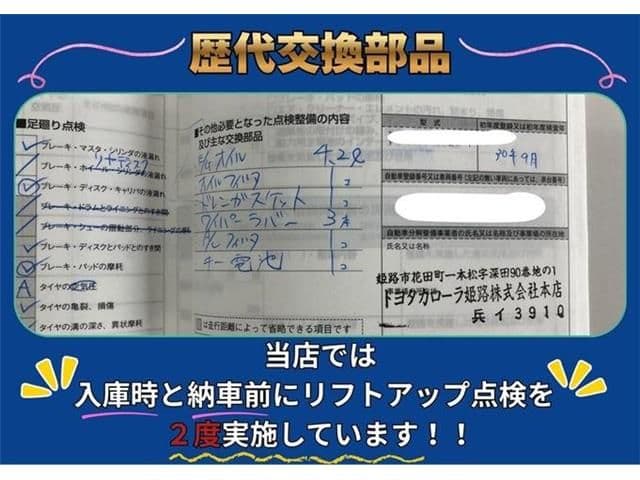 歴代交換部品
■足廻り点検
ブレーキ・マスタ・シリンダの液漏れ
リヤディスク
ブレーキ・ホイール・シリンダの液漏れ
ブレーキ・ディスク・キャリパの液漏れ
ブレーキ・ドラムとライニングとのすき間
ブレーキ・シューの摺動部分、ライニングの摩耗
ブレーキ・ディスクとパッドとのすき間
ブレーキ・パッドの摩耗
A タイヤの空気圧
タイヤの亀裂、損傷
タイヤの溝の深さ、異状摩耗
■その他必要となった点検整備の内容
及び主な交換部品
E/Gオイル 4.2ℓ
オイルフィルタ 1コ
ドレンガスケット 1コ
ワイパーラバー 3本
A/Cフィルタ 1コ
キー電池 1コ
は走行距離によって省略できる項目です
型式
初年度登録又は初年度検査年
30年9月
自動車登録番号又は車両番号(左記の無い車両にあっては、車台番号)
自動車分解整備事業者の氏名又は名称及び事業場の所在地
氏名又は名称
姫路市花田町一本松字深田90番地の1
トヨタカローラ姫路株式会社本店
兵イ3910
当店では
入庫時と納車前にリフトアップ点検を
2度実施しています！！